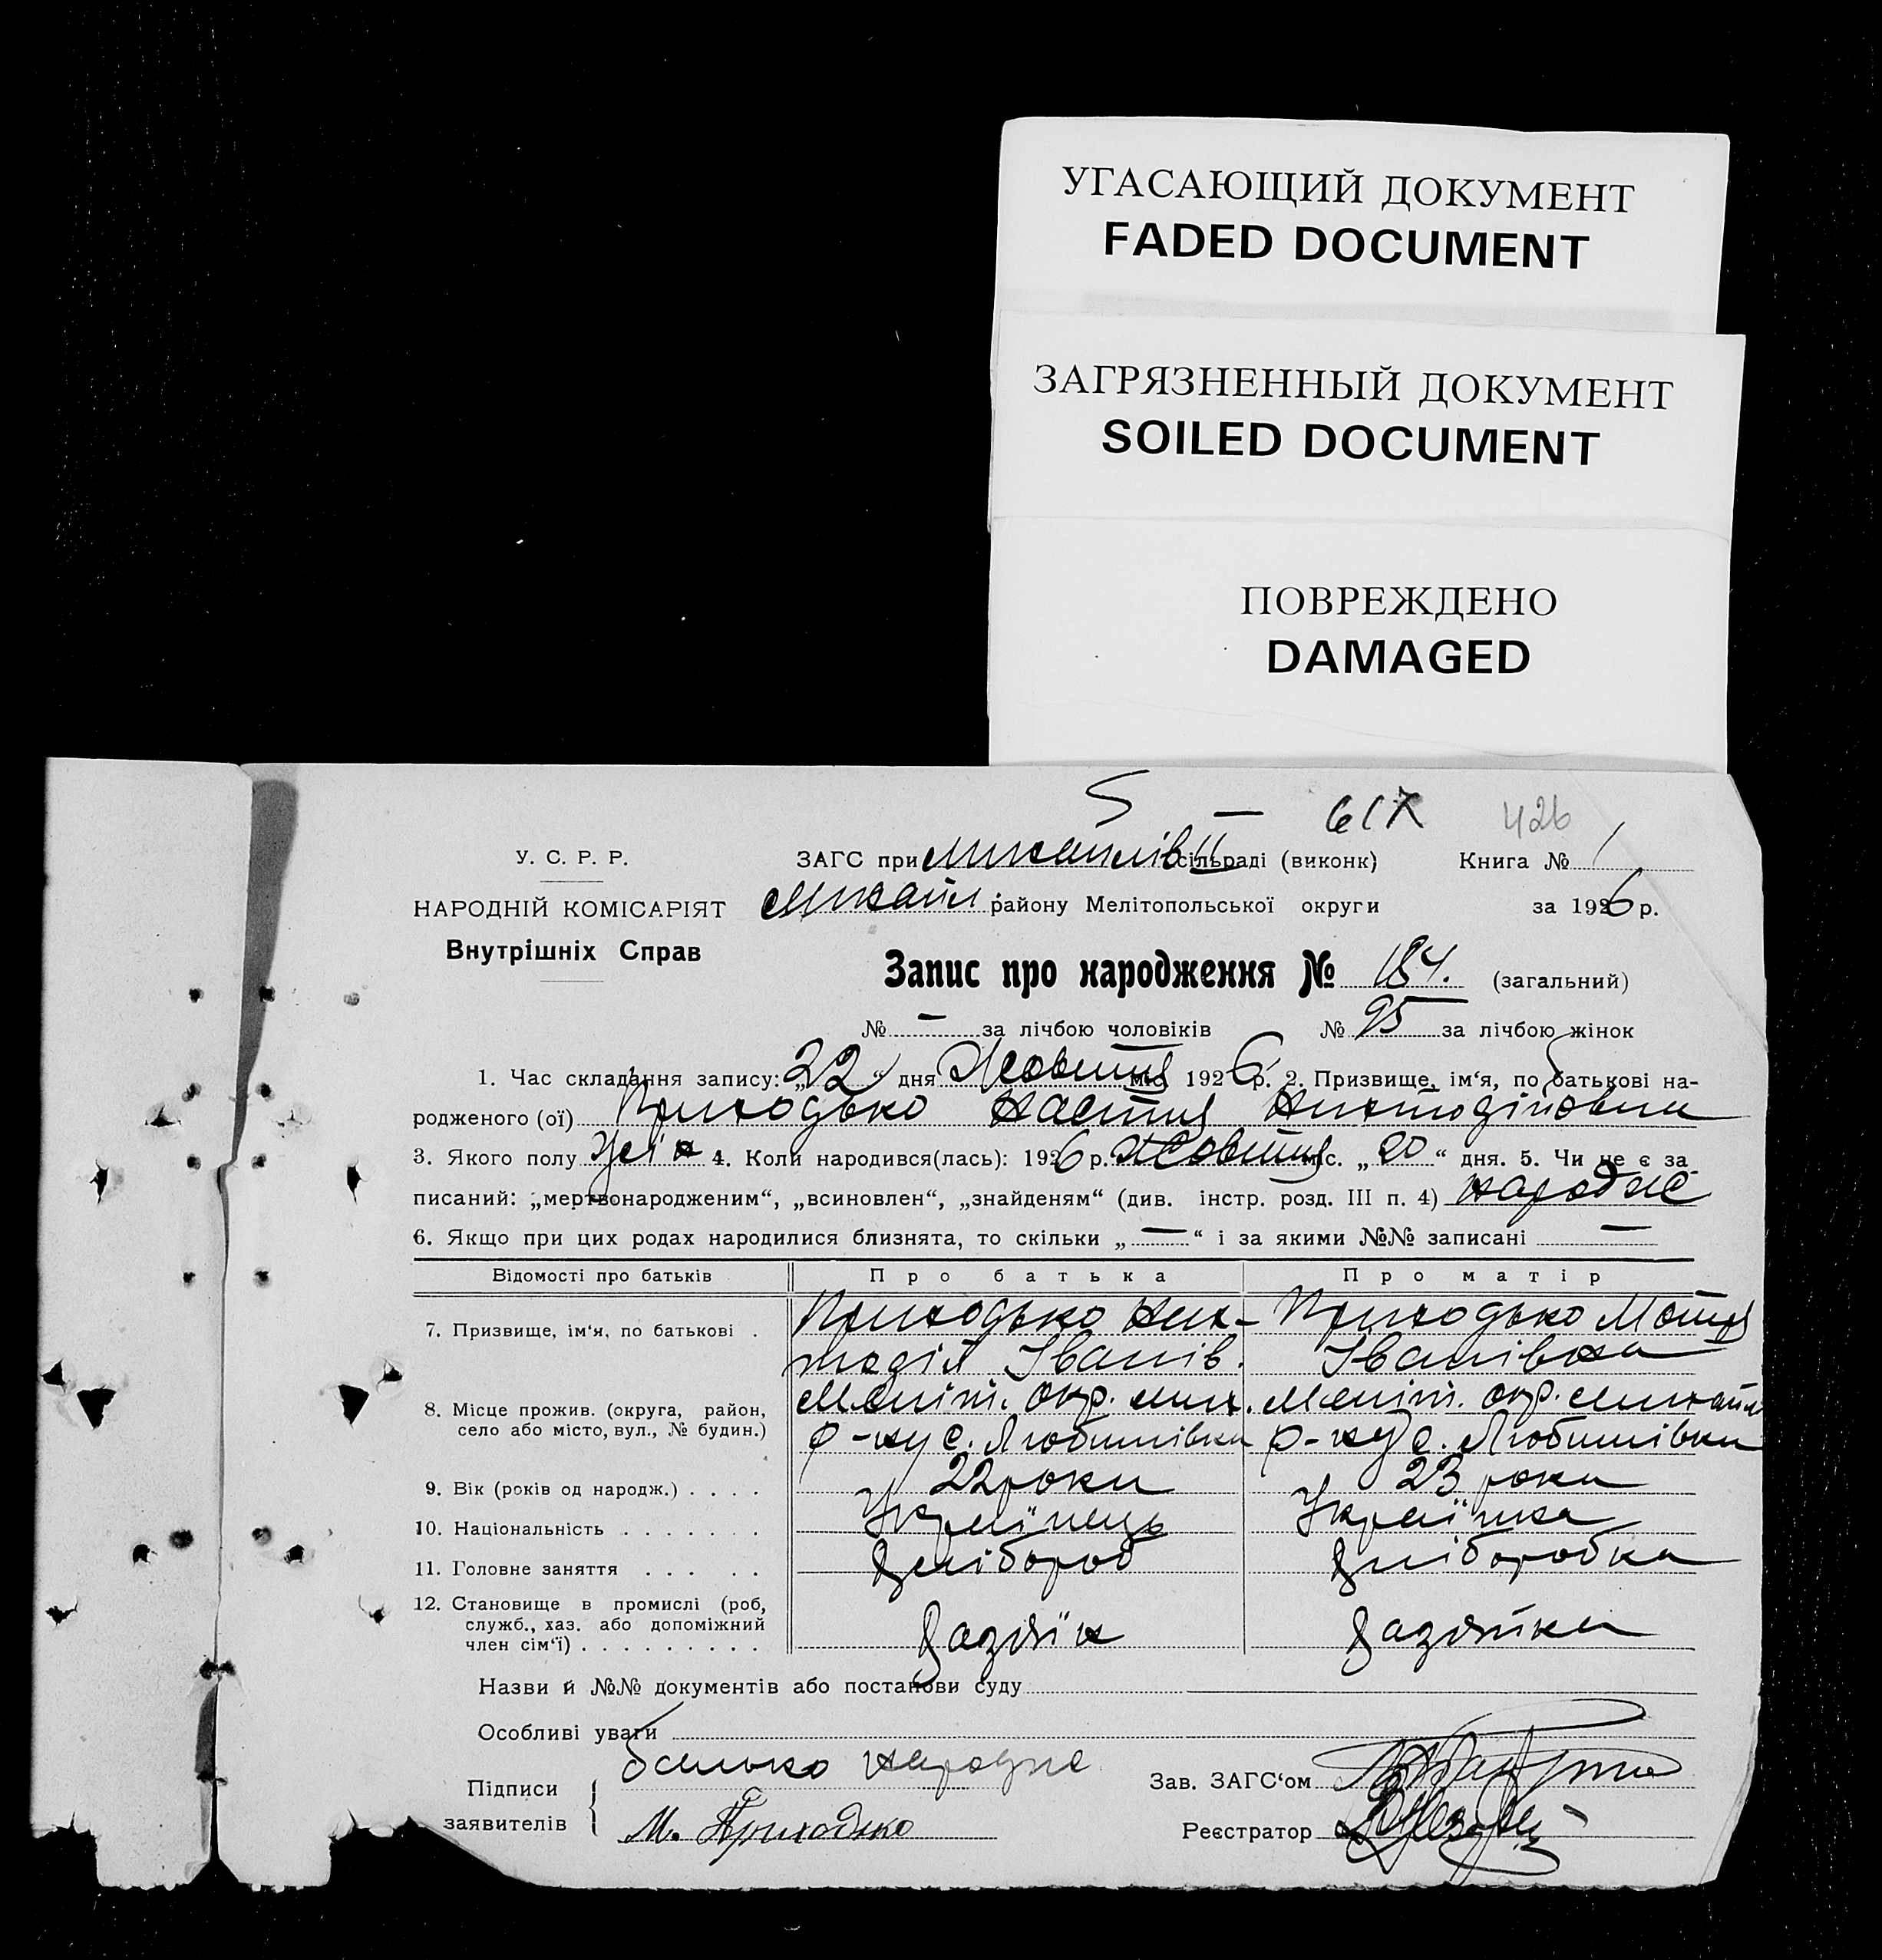 УГАСАЮЩИЙ ДОКУМЕНТ
FADED DOCUMENT
ЗАГРЯЗНЕННЫЙ ДОКУМЕНТ
SOILED DOCUMENT
ПОВРЕЖДЕНО
DAMAGED
426
У. С. Р. Р.
ЗАГС при Михайлів II сільраді (виконк) Книга № 1
НАРОДНІЙ КОМІСАРІЯТ
Внутрішніх Справ
Михайл. району Мелітопольської округи за 1926 р.
Запис про народження № 184. (загальний)
№ — за лічбою чоловіків № 95 за лічбою жінок
1. Час складання запису: „22“ дня Жовтня міс. 1926 р. 2. Призвище, ім‘я, по батькові на-
родженого (ої) Приходько Настя
3. Якого полу 4. Коли народився(лась): 1926 р. Жовтня міс. „20“ дня. 5. Чи не є за-
писаний: „мертвонародженим“, „всиновлен“, „знайденям“ (див. інстр. розд. III п. 4)
6. Якщо при цих родах народилися близнята, то скільки „—“ і за якими №№ записані —
Відомості про батьків Про батька Про матір
7. Призвище, ім‘я, по батькові . Приходько Приходько Мотря
Іванів. Іванівна
8. Місце прожив. (округа, район, село або місто, вул., № будин.) Меліт. окр. мих. Меліт. окр. михайл
р-ну с. Любимівки р-ну с. Любимівки
9. Вік (років од народж.) . . . . 22 роки 23 роки
10. Національність . . . . . . . Українець Українка
11. Головне заняття . . . . . хлібороб хліборобка
12. Становище в промислі (роб, служб., хаз. або допоміжний член сім‘ї) . . . . . . . . . хазяїн хазяйка
Назви й №№ документів або постанови суду
Особливі уваги
батько
Підписи заявителів
М. Приходько
Зав. ЗАГС‘ом
Реєстратор